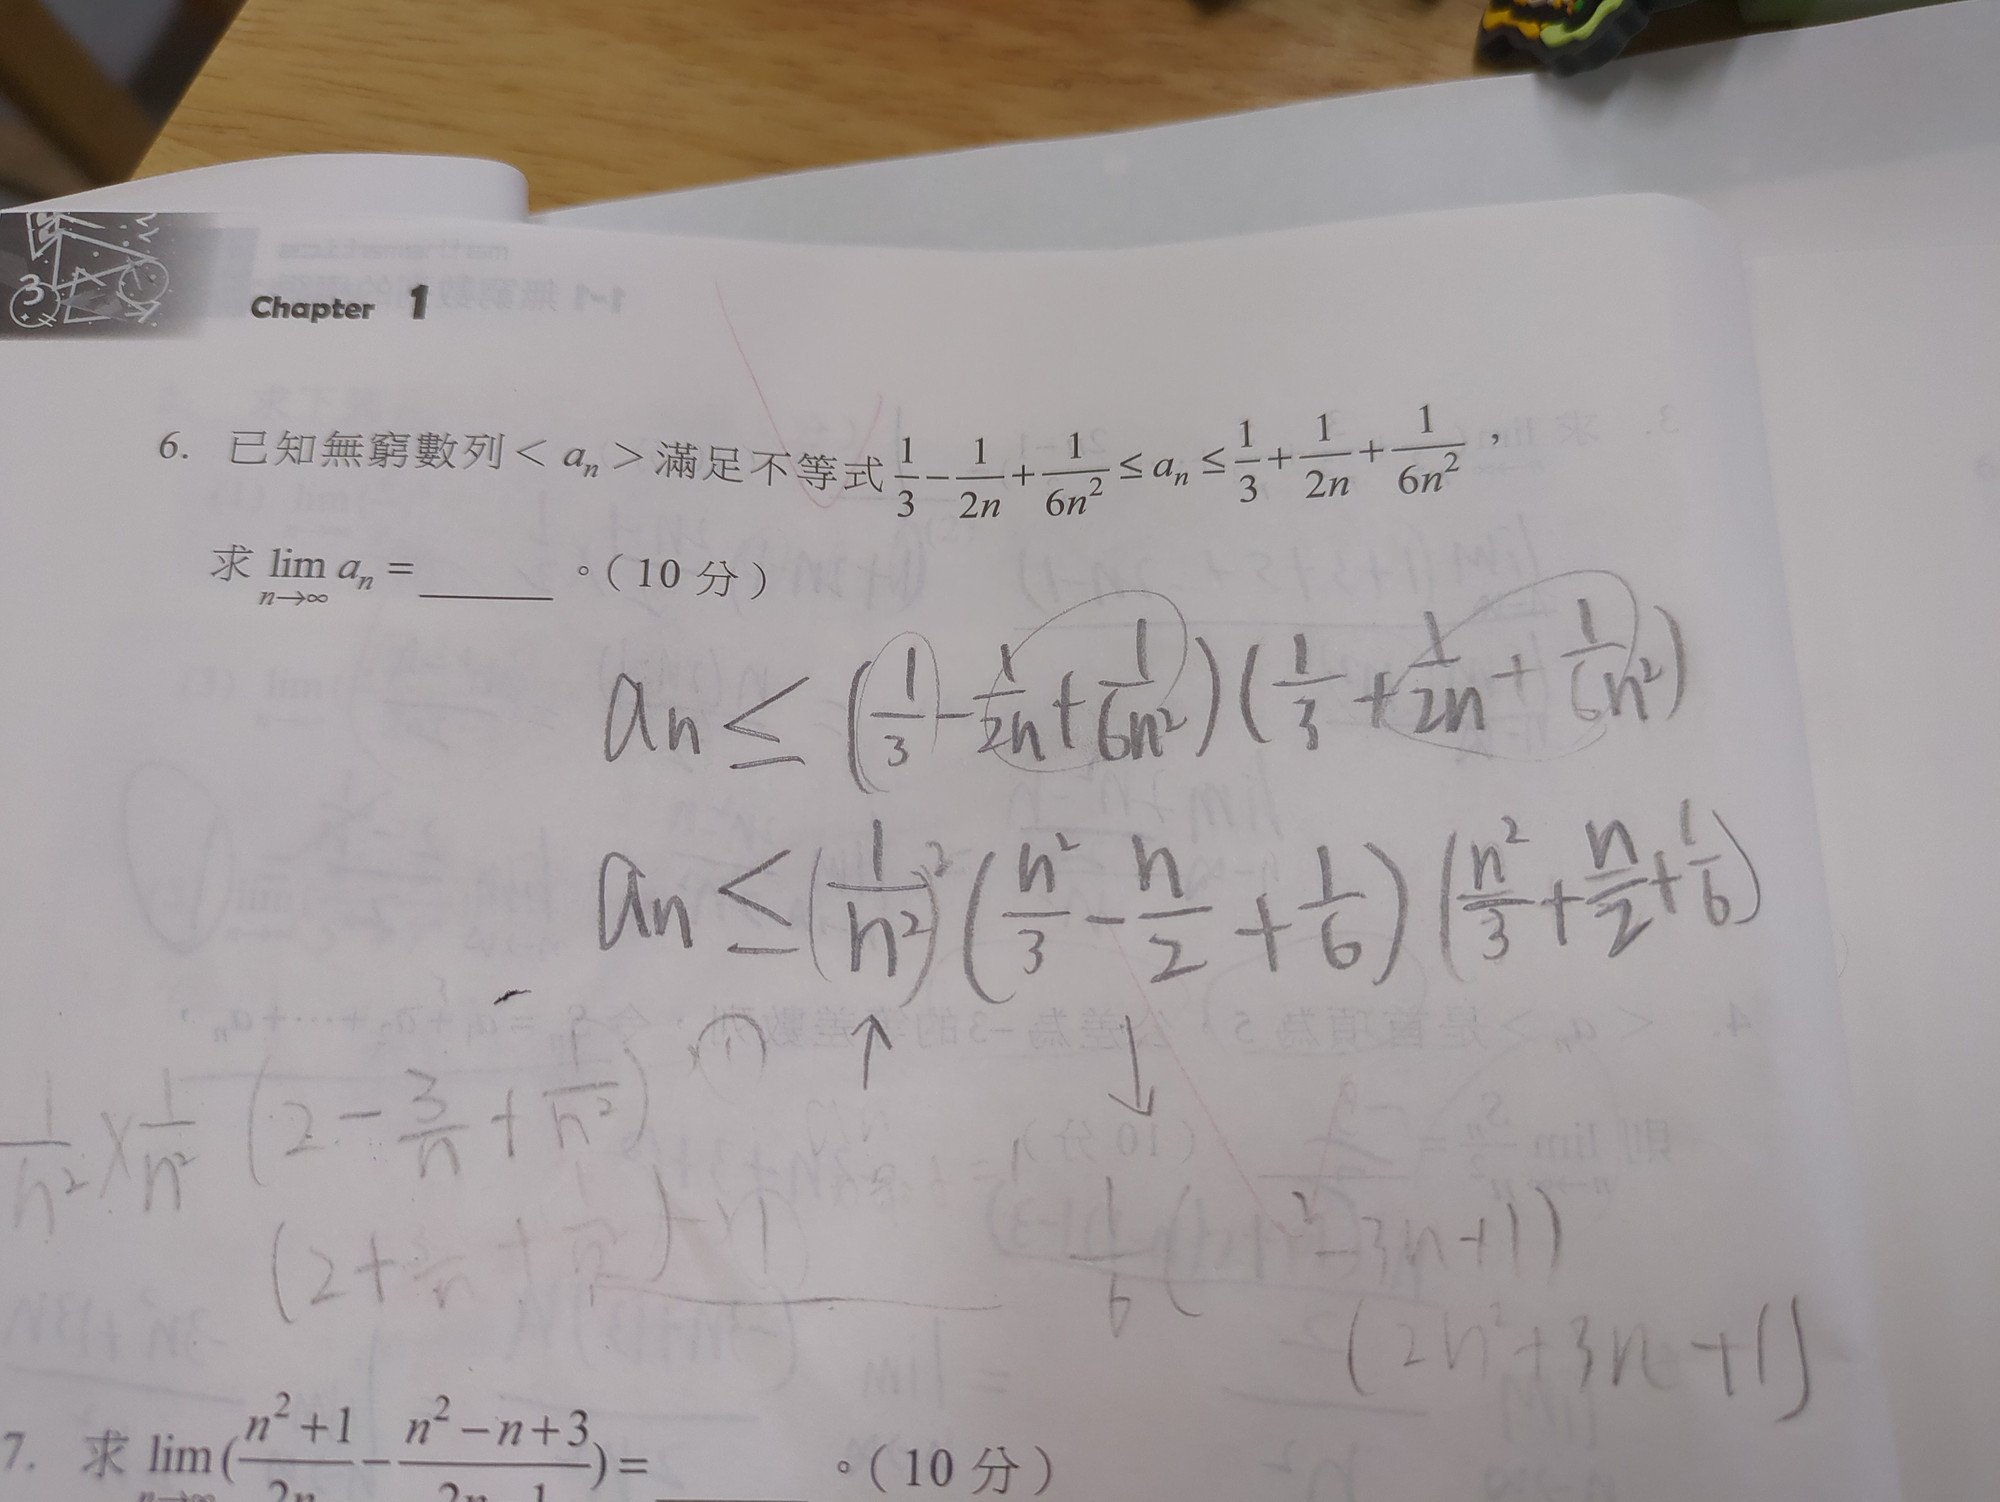 3
Chapter 1
6. 已知無窮數列 < aₙ > 滿足不等式 1/3 − 1/2n + 1/6n² ≤ aₙ ≤ 1/3 + 1/2n + 1/6n²，
求 lim n→∞ aₙ = ______ 。（10 分）
an ≤ (1/3 − 1/2n + 1/6n²)(1/3 + 1/2n + 1/6n²)
an ≤ (1/n²)² (n²/3 − n/2 + 1/6)(n²/3 + n/2 + 1/6)
1/n² × 1/n² (2 − 3/n + 1/n²)
(2n² + 3n + 1)
7. 求 lim n→∞ (n²+1/2n − n²−n+3/2n 1) = ______ 。（10 分）